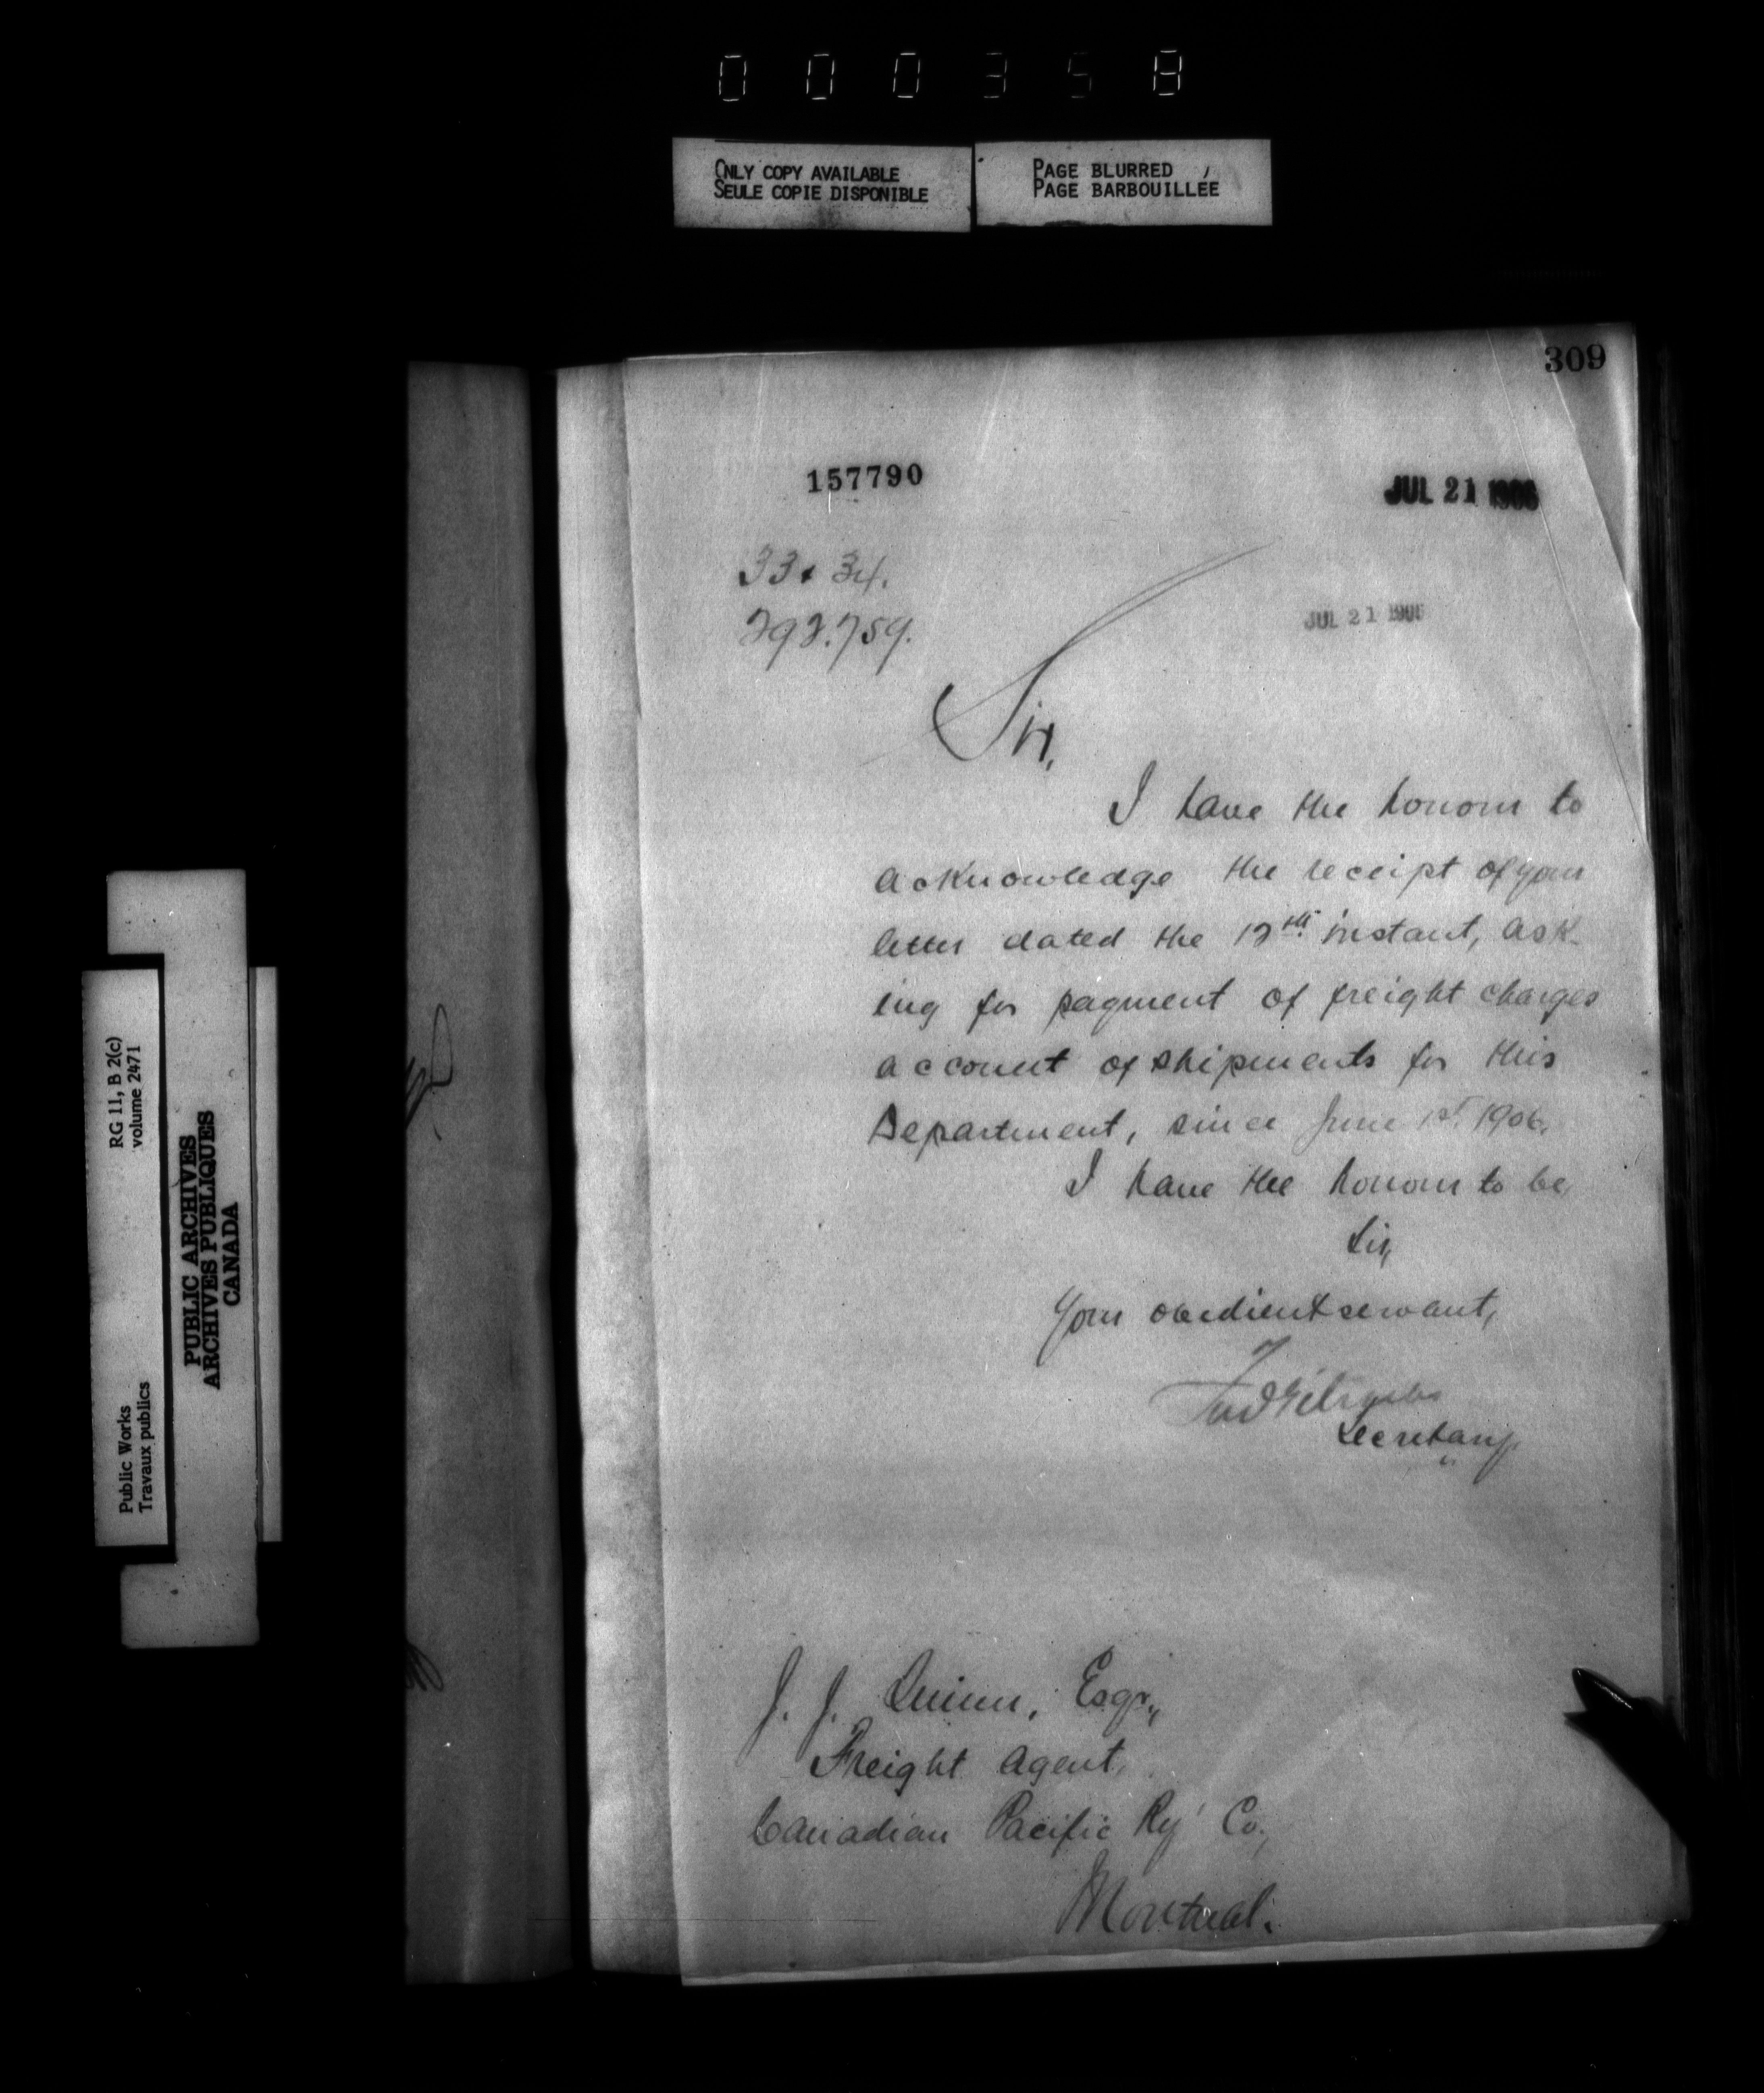 000358
ONLY COPY AVAILABLE
SEULE COPIE DISPONIBLE
PAGE BLURRED
PAGE BARBOUILLÉE
309
157790
JUL 21 1906
33 & 34.
292.759.
JUL 21 1906
Sir,
I have the honour to
acknowledge the receipt of your
letter dated the 12th instant, ask-
ing for payment of freight charges
account of shipments for this
Department, since June 1st 1906.
I have the honour to be,
Sir,
Your obedient servant,
Secretary
J. J. Quinn, Esqr.,
Freight Agent,
Canadian Pacific Ry Co.,
Montreal.
RG 11, B 2(c)
volume 2471
Public Works
Travaux publics
PUBLIC ARCHIVES
ARCHIVES PUBLIQUES
CANADA